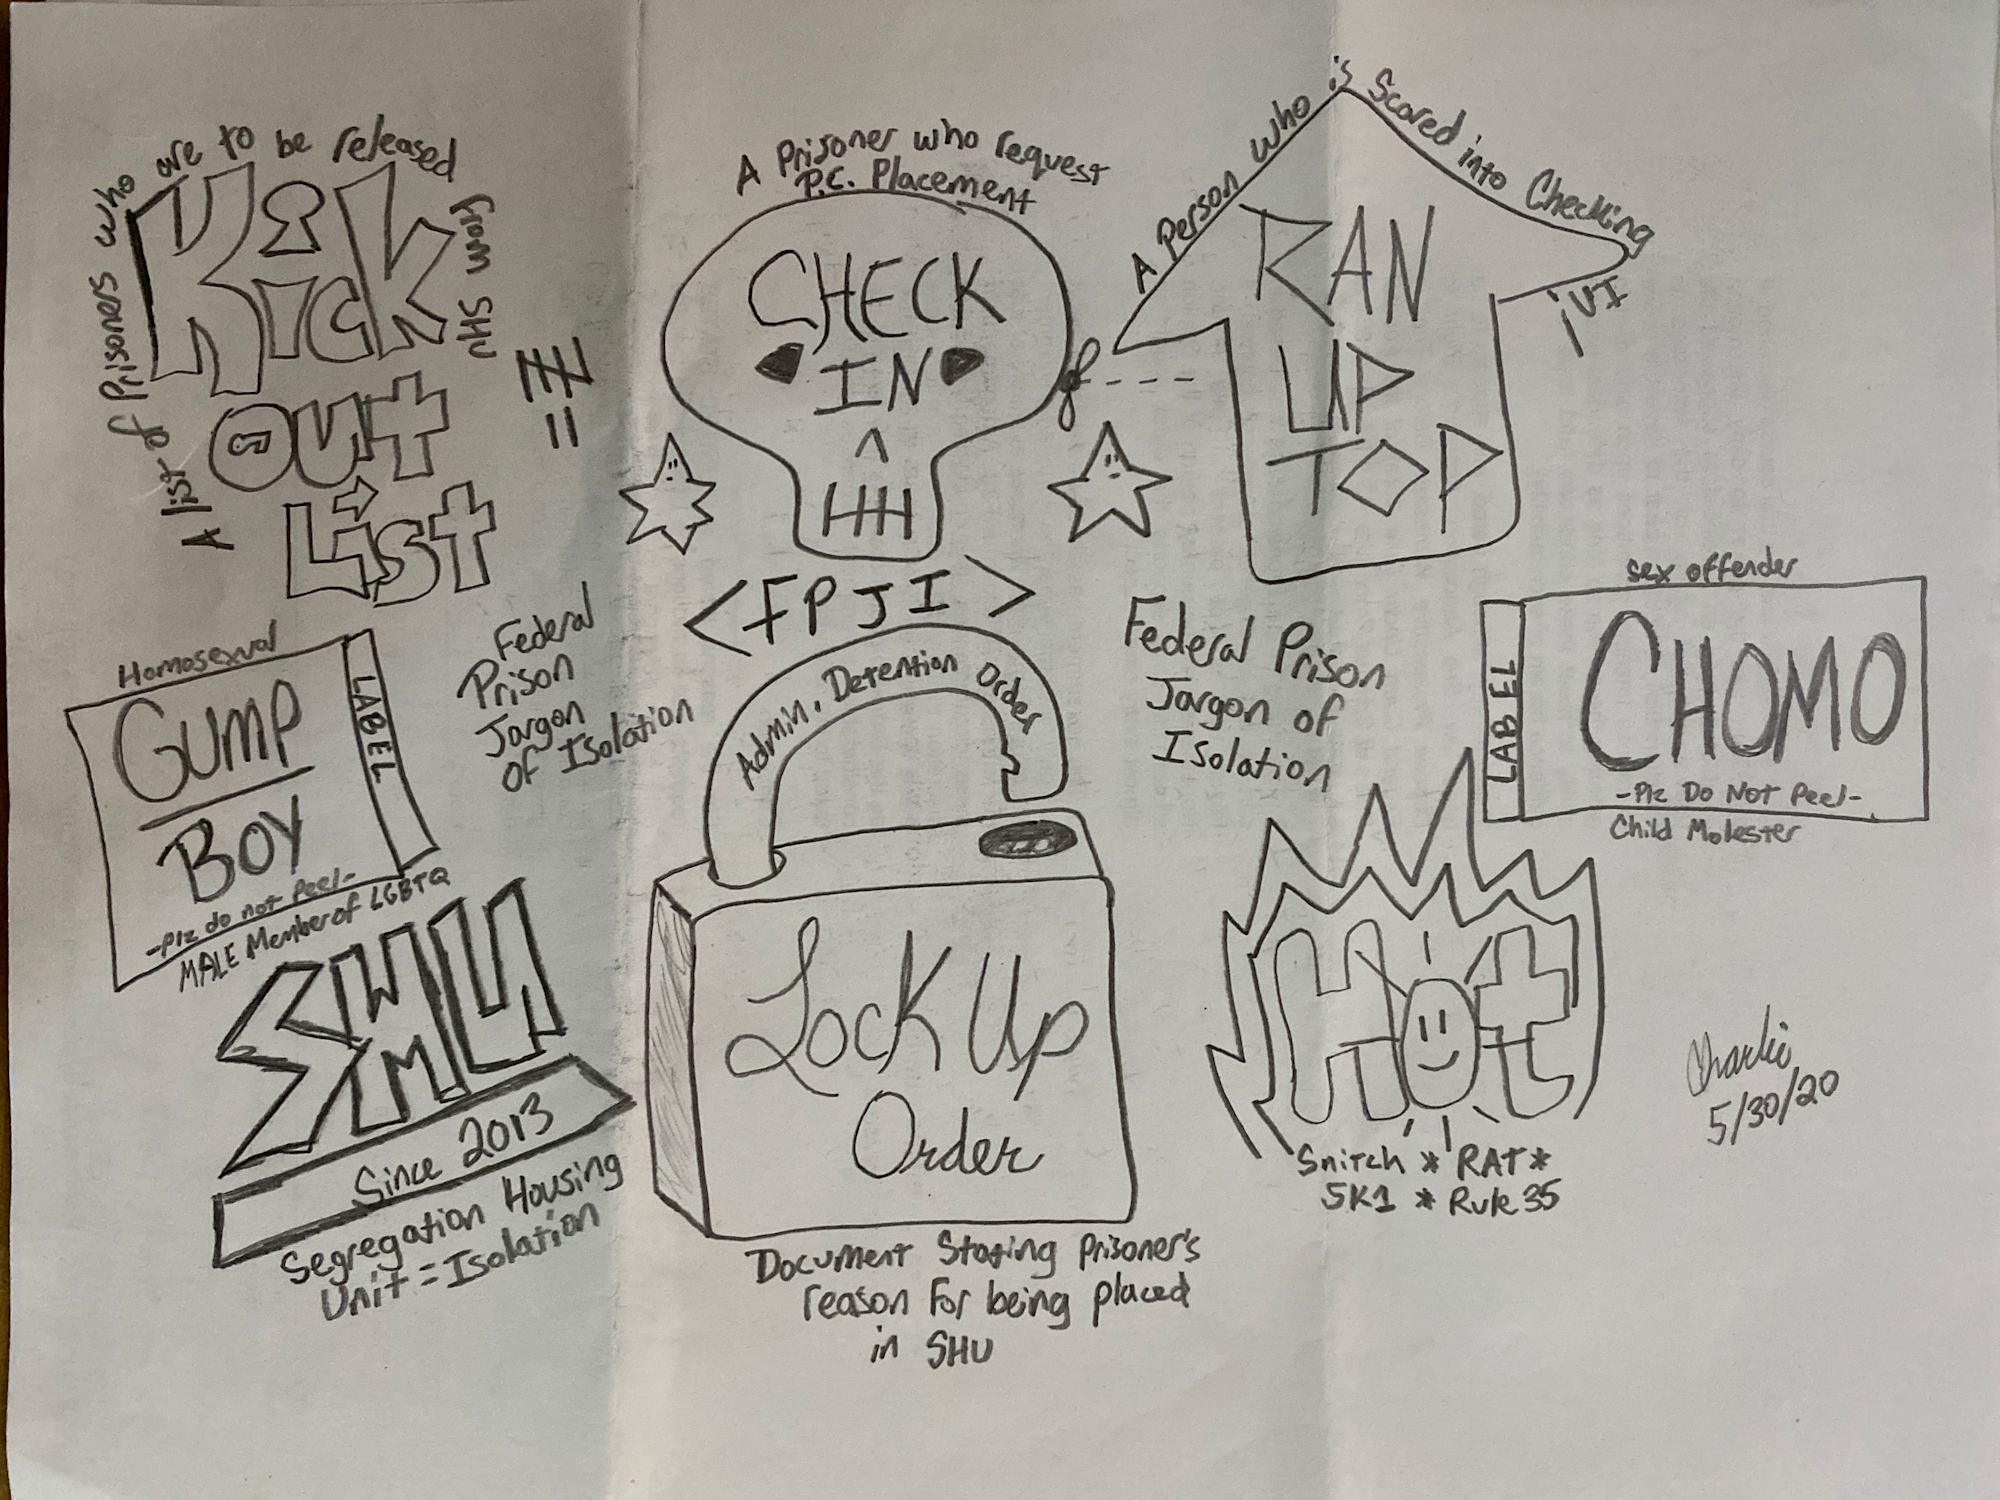 A list of Prisoners who are to be released
from SHU
Kick
Out
List
A Prisoner who request
P.C. Placement
CHECK
IN
A Person who is Scared into Checking
In!
RAN
UP
TOP
<FPJI>
Homosexual
GUMP
BOY
LABEL
-Plz do not Peel-
MALE Member of LGBTQ
Federal
Prison
Jargon
of Isolation
Admin. Detention Order
Federal Prison
Jargon of
Isolation
sex offender
LABEL
CHOMO
-Plz Do Not Peel-
Child Molester
Since 2013
Segregation Housing
Unit = Isolation
Lock Up
Order
Document Stating Prisoner's
reason For being placed
in SHU
Hot
Snitch * RAT *
5K1 * Rule 35
Charlie
5/30/20